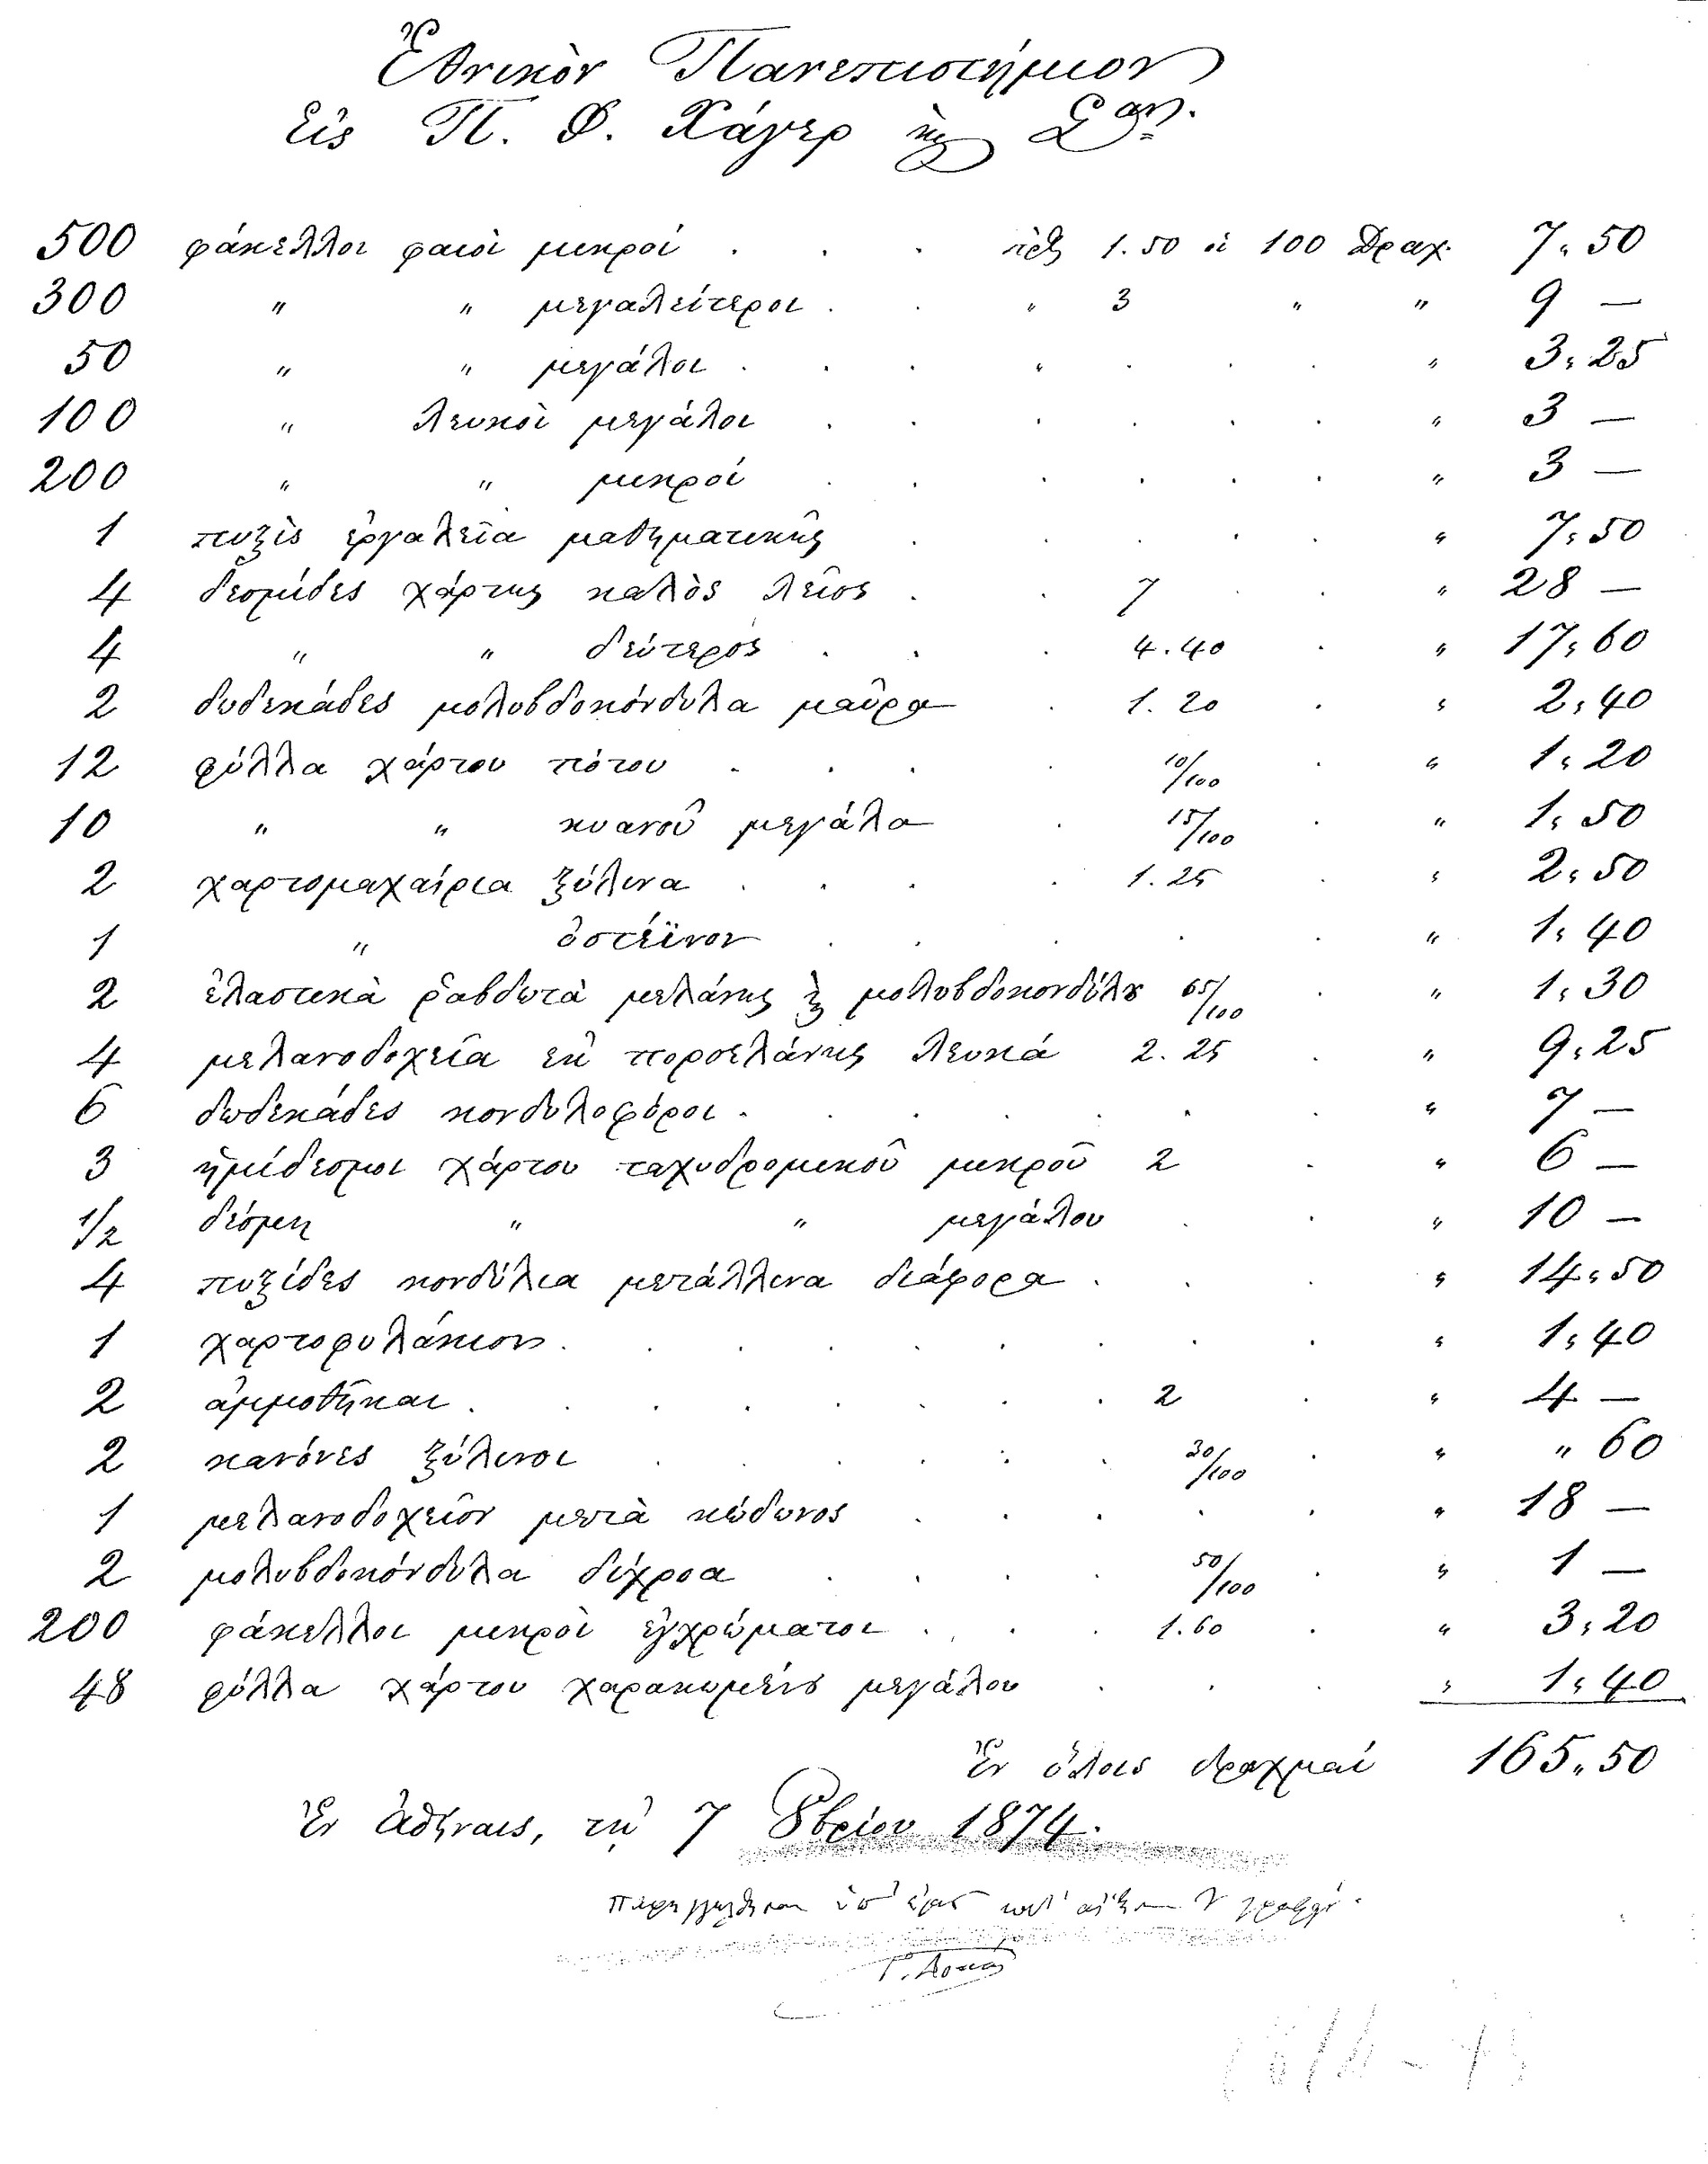 Ἐθνικὸν Πανεπιστήμιον
Εἰς Π. Φ. Χάγερ κ Σαν.
500 φάκελλοι φαιοὶ μικροί . . . πρὸς 1.50 ἁ 100 Δραχ. 7,50
300 " " μεγαλείτεροι . . " 3 " " 9 —
50 " " μεγάλοι . . . " . . . " 3,25
100 " λευκοὶ μεγάλοι . . . . . . " 3 —
200 " " μικροί . . . . . . " 3 —
1 πυξὶς ἐργαλεῖα μαθηματικῆς . . . . . " 7,50
4 δεσμίδες χάρτης καλὸς λεῖος . . 7 . . " 28 —
4 " " δεύτερος . . . 4.40 . " 17,60
2 δυδεκάδες μολυβδοκόνδυλα μαῦρα . 1.20 . " 2,40
12 φύλλα χάρτου πότου . . . . 10/100 . " 1,20
10 " " κυανοῦ μεγάλα . 15/100 . " 1,50
2 χαρτομαχαίρια ξύλινα . . . . 1.25 . " 2,50
1 " ὀστέϊνον . . . . . " 1,40
2 ἐλαστικὰ ῥαβδωτὰ μελάνης ϗ μολυβδοκονδύλȣ 65/100 . " 1,30
4 μελανοδοχεῖα ἐκ πορσελάνης λευκά 2.25 . " 9,25
6 δωδεκάδες κονδυλοφόροι . . . . . . . " 7 —
3 ἡμίδεσμοι χάρτου ταχυδρομικοῦ μικροῦ 2 . " 6 —
1/2 δέσμη " " μεγάλου . . " 10 —
4 πυξίδες κονδύλια μετάλλινα διάφορα . . . " 14,50
1 χαρτοφυλάκιον . . . . . . . . . " 1,40
2 ἀμμοθῆκαι . . . . . . . . 2 . " 4 —
2 κανόνες ξύλινοι . . . . . . 30/100 . " " 60
1 μελανοδοχεῖον μετὰ κώδωνος . . . . . " 18 —
2 μολυβδοκόνδυλα δίχροα . . . . 50/100 . " 1 —
200 φάκελλοι μικροὶ ἐγχρώματοι . . . . 1.60 . " 3,20
48 φύλλα χάρτου χαρακωμένο μεγάλου . . . " 1,40
Ἐν ὅλοις δραχμαί 165,50
Ἐν Ἀθήναις, τῇ 7 8βρίου 1874.